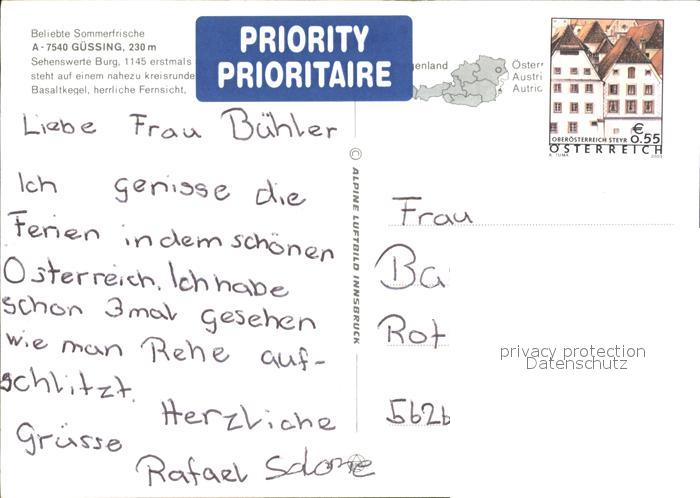 Beliebte Sommerfrische
A-7540 GÜSSING, 230 m
Sehenswerte Burg, 1145 erstmals
steht auf einem nahezu kreisrunde
Basaltkegel, herrliche Fernsicht,
PRIORITY
PRIORITAIRE
genland
Österr
Austri
Autric
€
0.55
OBERÖSTERREICH STEYR
ÖSTERREICH
A. TUMA 2003
Liebe Frau Bühler
Ich genisse die
Ferien in dem schönen
Österreich. Ich habe
schon 3mal gesehen
wie man Rehe auf-
schlitzt.
Herzliche
Grüsse
Rafael
© ALPINE LUFTBILD INNSBRUCK
Frau
Ba
Rot
562b
privacy protection
Datenschutz